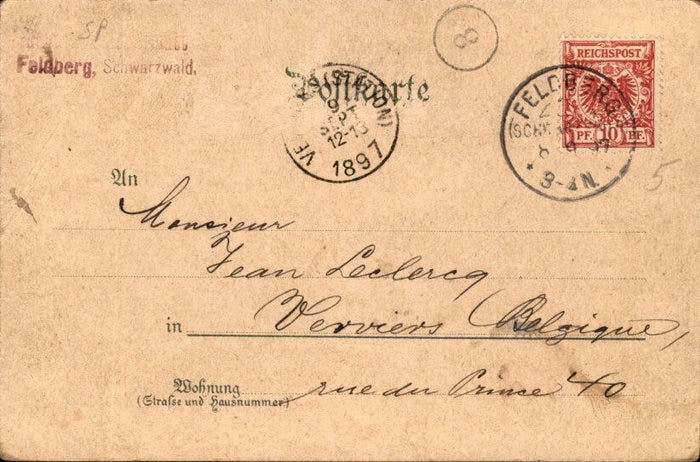 SP
Feldberg, Schwarzwald.
8
Postkarte
(STATION)
9
SEPT
12-
1897
REICHSPOST
PF. 10 PF.
FELDBERG
8 9 97
3-4N.
5
An
Monsieur
Jean Leclercq
in Verviers (Belgique,
Wohnung
(Straße und Hausnummer)
rue du Prince 40